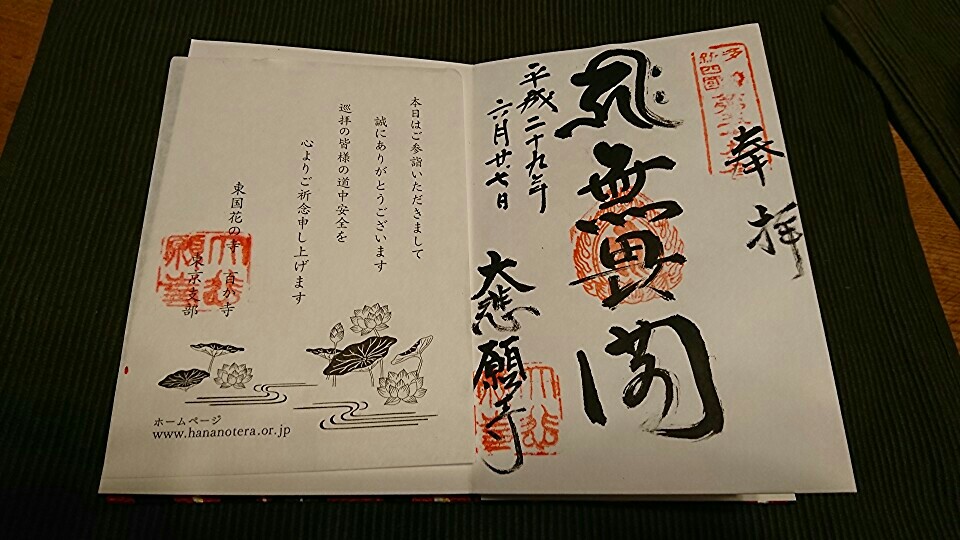 奉拝
無畏閣
平成二十九年
六月廿七日
大悲願寺
本日はご参詣いただきまして
誠にありがとうございます
巡拝の皆様の道中安全を
心よりご祈念申し上げます
東国花の寺 百か寺
東京支部
ホームページ
www.hananotera.or.jp